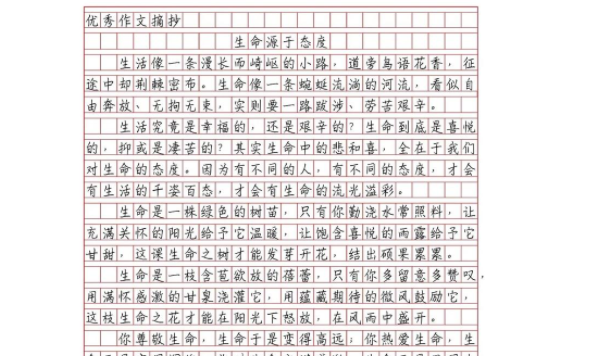 优秀作文摘抄
生命源于态度
生活像一条漫长而崎岖的小路，道旁鸟语花香，征
途中却荆棘密布。生命像一条蜿蜒流淌的河流，看似自
由奔放、无拘无束，实则要一路跋涉、劳苦艰辛。
生活究竟是幸福的，还是艰辛的？生命到底是喜悦
的，抑或是凄苦的？其实生命中的悲和喜，全在于我们
对生命的态度。因为有不同的人，有不同的态度，才会
有生活的千姿百态，才会有生命的流光溢彩。
生命是一株绿色的树苗，只有你勤浇水常照料，让
充满关怀的阳光给予它温暖，让饱含喜悦的雨露给予它
甘甜，这课生命之树才能发芽开花，结出硕果累累。
生命是一枝含苞欲放的蓓蕾，只有你多留意多赞叹，
用满怀感激的甘泉浇灌它，用蕴藏期待的微风鼓励它，
这枝生命之花才能在阳光下怒放，在风雨中盛开。
你尊敬生命，生命于是变得高远；你热爱生命，生